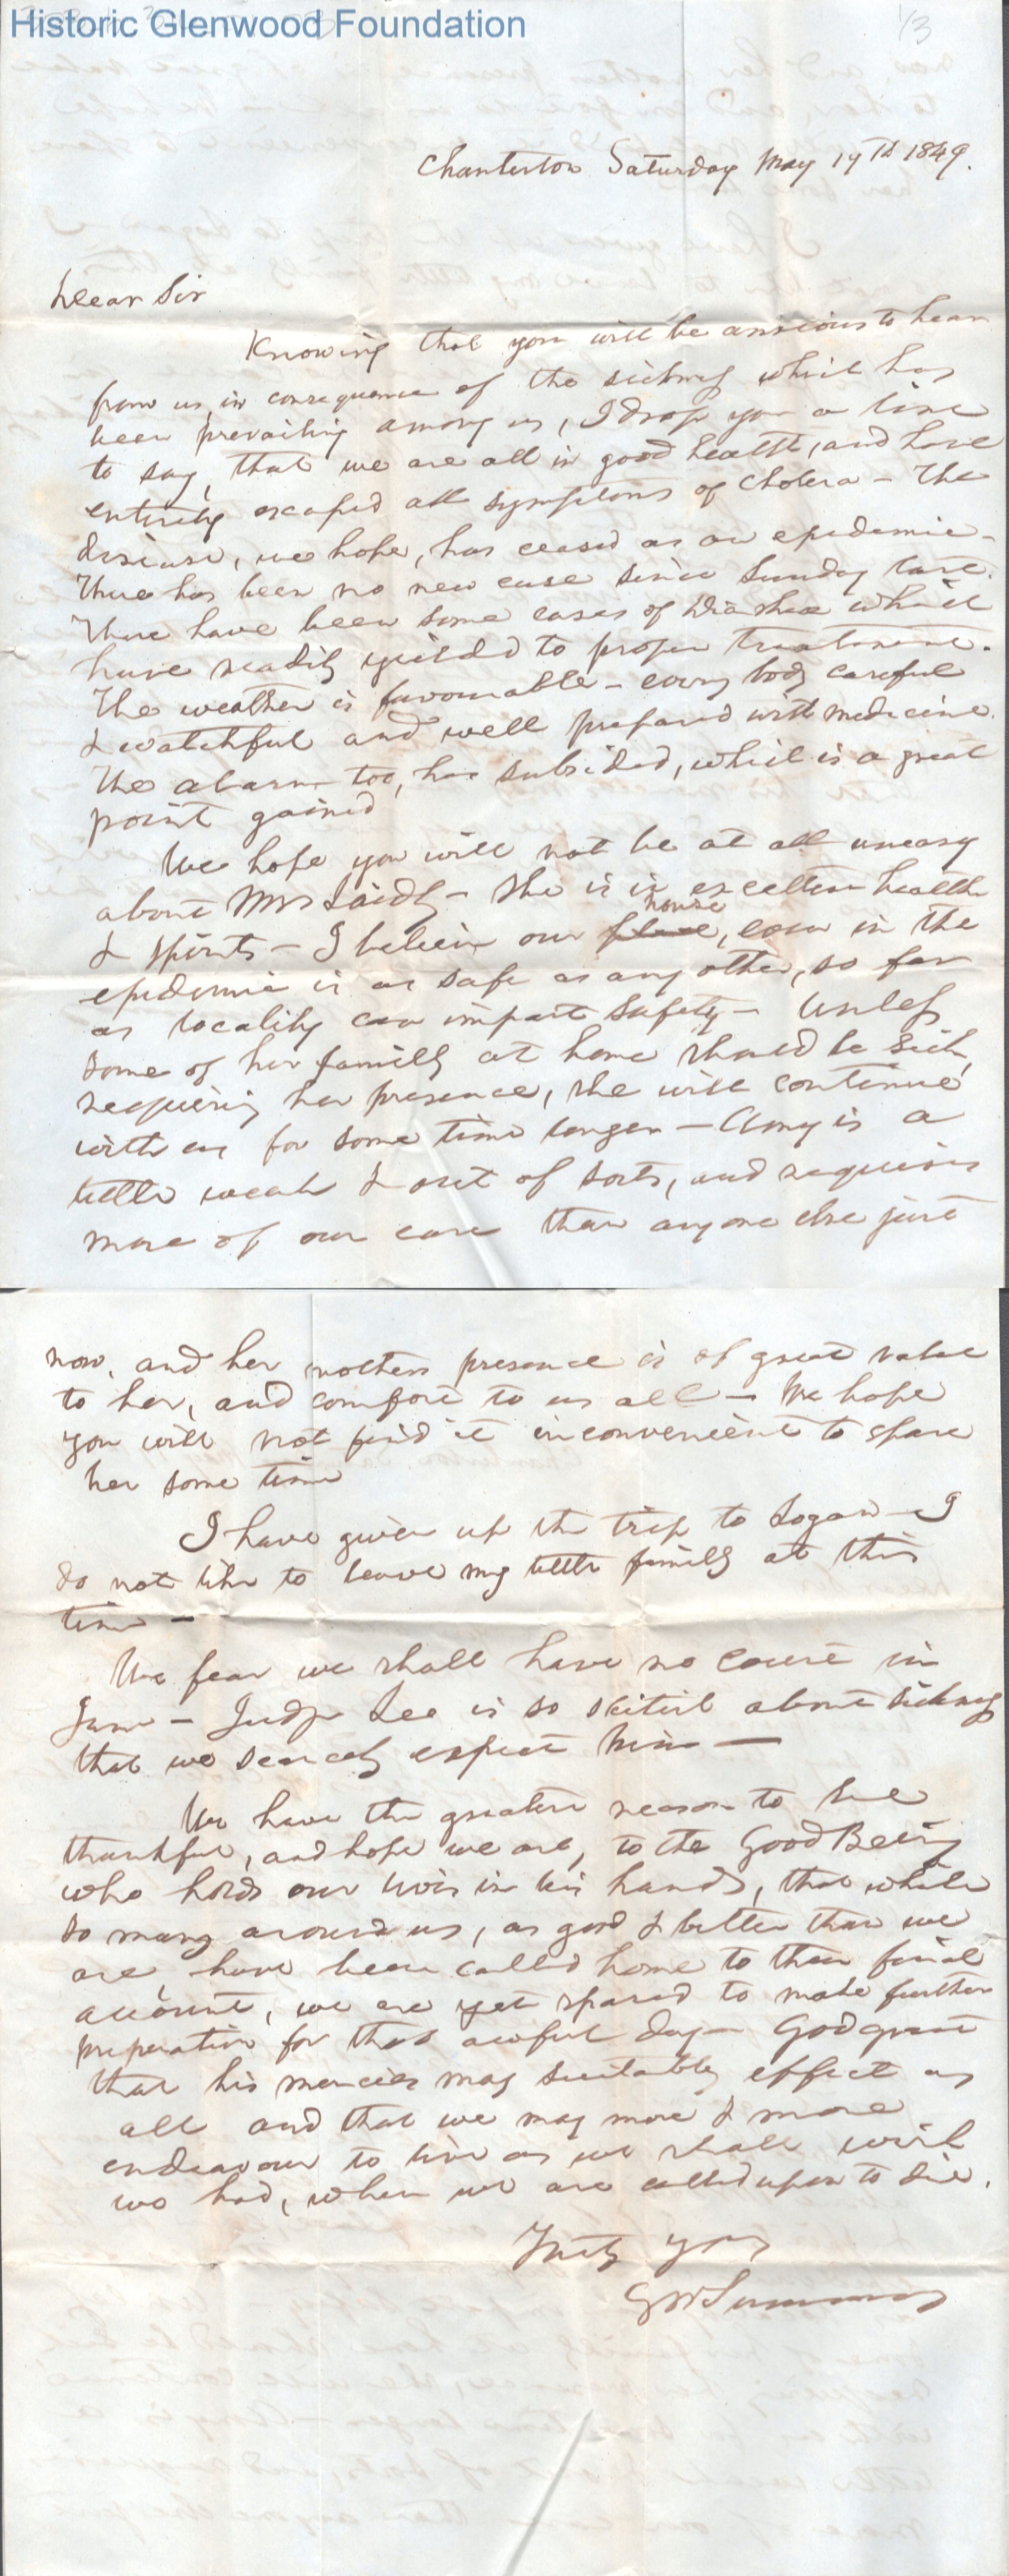 Historic Glenwood Foundation
1/3
Charleston Saturday May 19th 1849.
Dear Sir
Knowing that you will be anxious to hear
from us, in consequence of the sickness which has
been prevailing among us, I drop you a line
to say, that we are all in good health, and have
entirely escaped all symptoms of cholera - The
disease, we hope, has ceased as an epidemic -
There has been no new case since Sunday last.
There have been some cases of Diarrhea which
have readily yielded to proper treatment.
The weather is favourable - every body careful
& watchful and well prepared with medicine.
The alarm too, has subsided, which is a great
point gained
We hope you will not be at all uneasy
about Mrs Laidly - She is in excellent health
& spirits - I believe our place house, even in the
epidemic is as safe as any other, so far
as locality can impart safety - Unless
some of her family at home should be sick,
requiring her presence, she will continue
with us for some time longer - Amy is a
little weak & out of sorts, and requires
more of our care than anyone else just
now, and her mothers presence is of great value
to her, and comfort to us all - We hope
you will not find it inconvenient to spare
her some time
I have given up the trip to Logan - I
do not like to leave my little family at this
time -
We fear we shall have no court in
June - Judge Lee is so skitish about sickness
that we scarcely expect him -
We have the greatest reason to be
thankful, and hope we are, to the Good Being
who holds our lives in his hands, that while
so many around us, as good & better than we
are, have been called home to their final
account, we are yet spared to make further
preperation for that awful day - God grant
that his mercies may suitably effect us
all and that we may more & more
endeavour to live as we shall wish
we had, when we are called upon to die.
Truly yrs
GW Summers